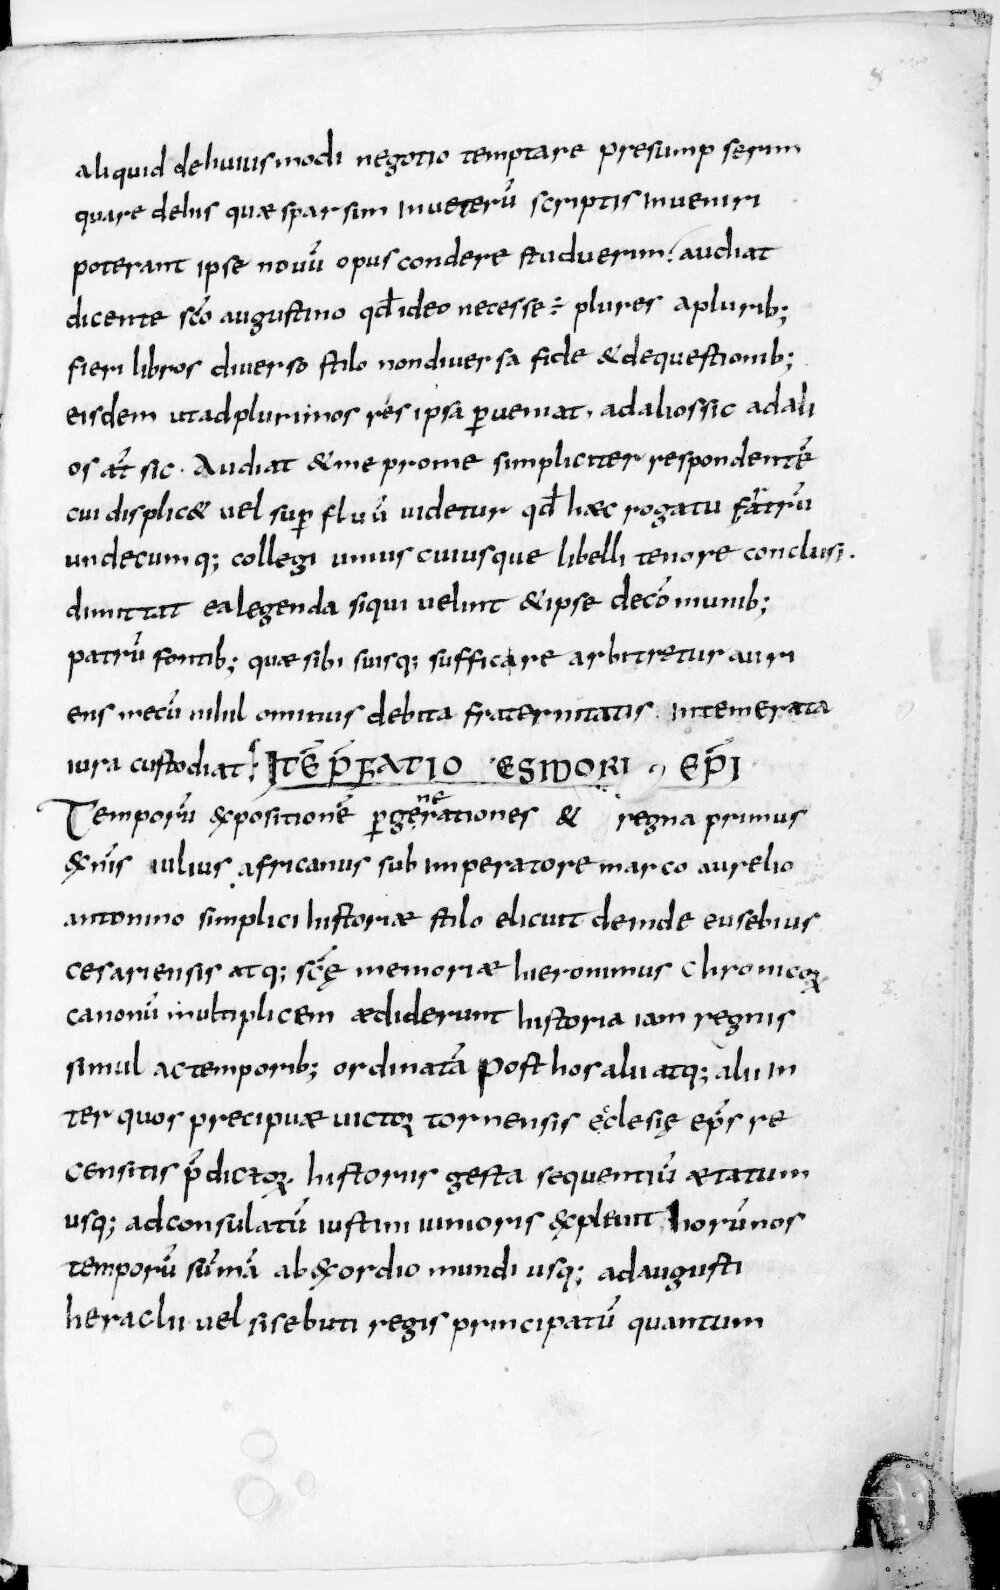 8
aliquid dehuiusmodi negotio temptare presump serim
quare dehis quæ sparsim inueterū scriptis inueniri
poterant ipse nouū opus condere studuerim; audiat
dicente sc̄o augustino qđ ideo necesse ÷ plures a plurib;
fieri libros diuerso stilo nondiuersa fide & dequestionib;
eisdem utadplurimos res ipsa ꝑueniat, adaliossic adali
os aūt sic. Audiat & me prome simpliciter respondentē
cui displic& uel suꝑfluū uidetur qđ hæc rogatu fr̄atrū
undecumq; collegi unius cuiusque libelli tenore conclusi.
dimittat ealegenda siqui uelint & ipse decōmunib;
patrū fontib; quæ sibi suisq; sufficare arbitretur auri
ens mecū nihil ominus debita fraternitatis intemerata
iura custodiat; ITĒ P̄FATIO ESIDORI EP̄I
Temporū expositionē ꝑgenerationes & regna primus
ex nīs iulius africanus sub imperatore marco aurelio
antonino simplici historiæ stilo elicuit deinde eusebius
cesariensis atq; sc̄ę memoriæ hieronimus chronicoꝝ
canonū multiplicem ædiderunt historia iam regnis
simul ac temporib; ordinatā post hos alii atq; alii in
ter quos precipuæ uictoꝝ tornensis eclesię ep̄s re
censitis p̄dictoꝝ historiis gesta sequentiū ætatum
usq; adconsulatū iustini iunioris expleuit horūnos
temporū sūmā abexordio mundi usq; adaugusti
heraclii uel sisebuti regis principatū quantum